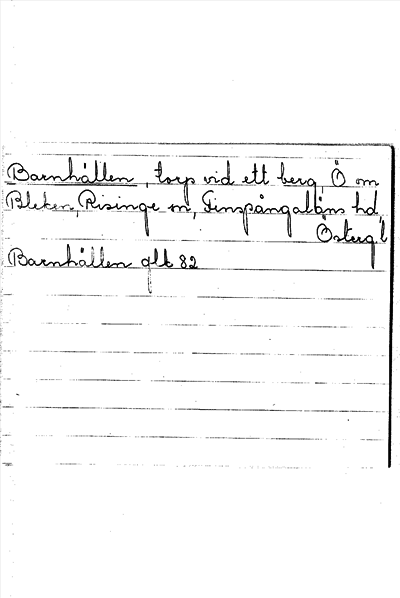 Barnhällen, torp vid ett berg, Ö om
Bleken, Risinge sn, Finspångaläns hd,
Österg l
Barnhällen glk 82